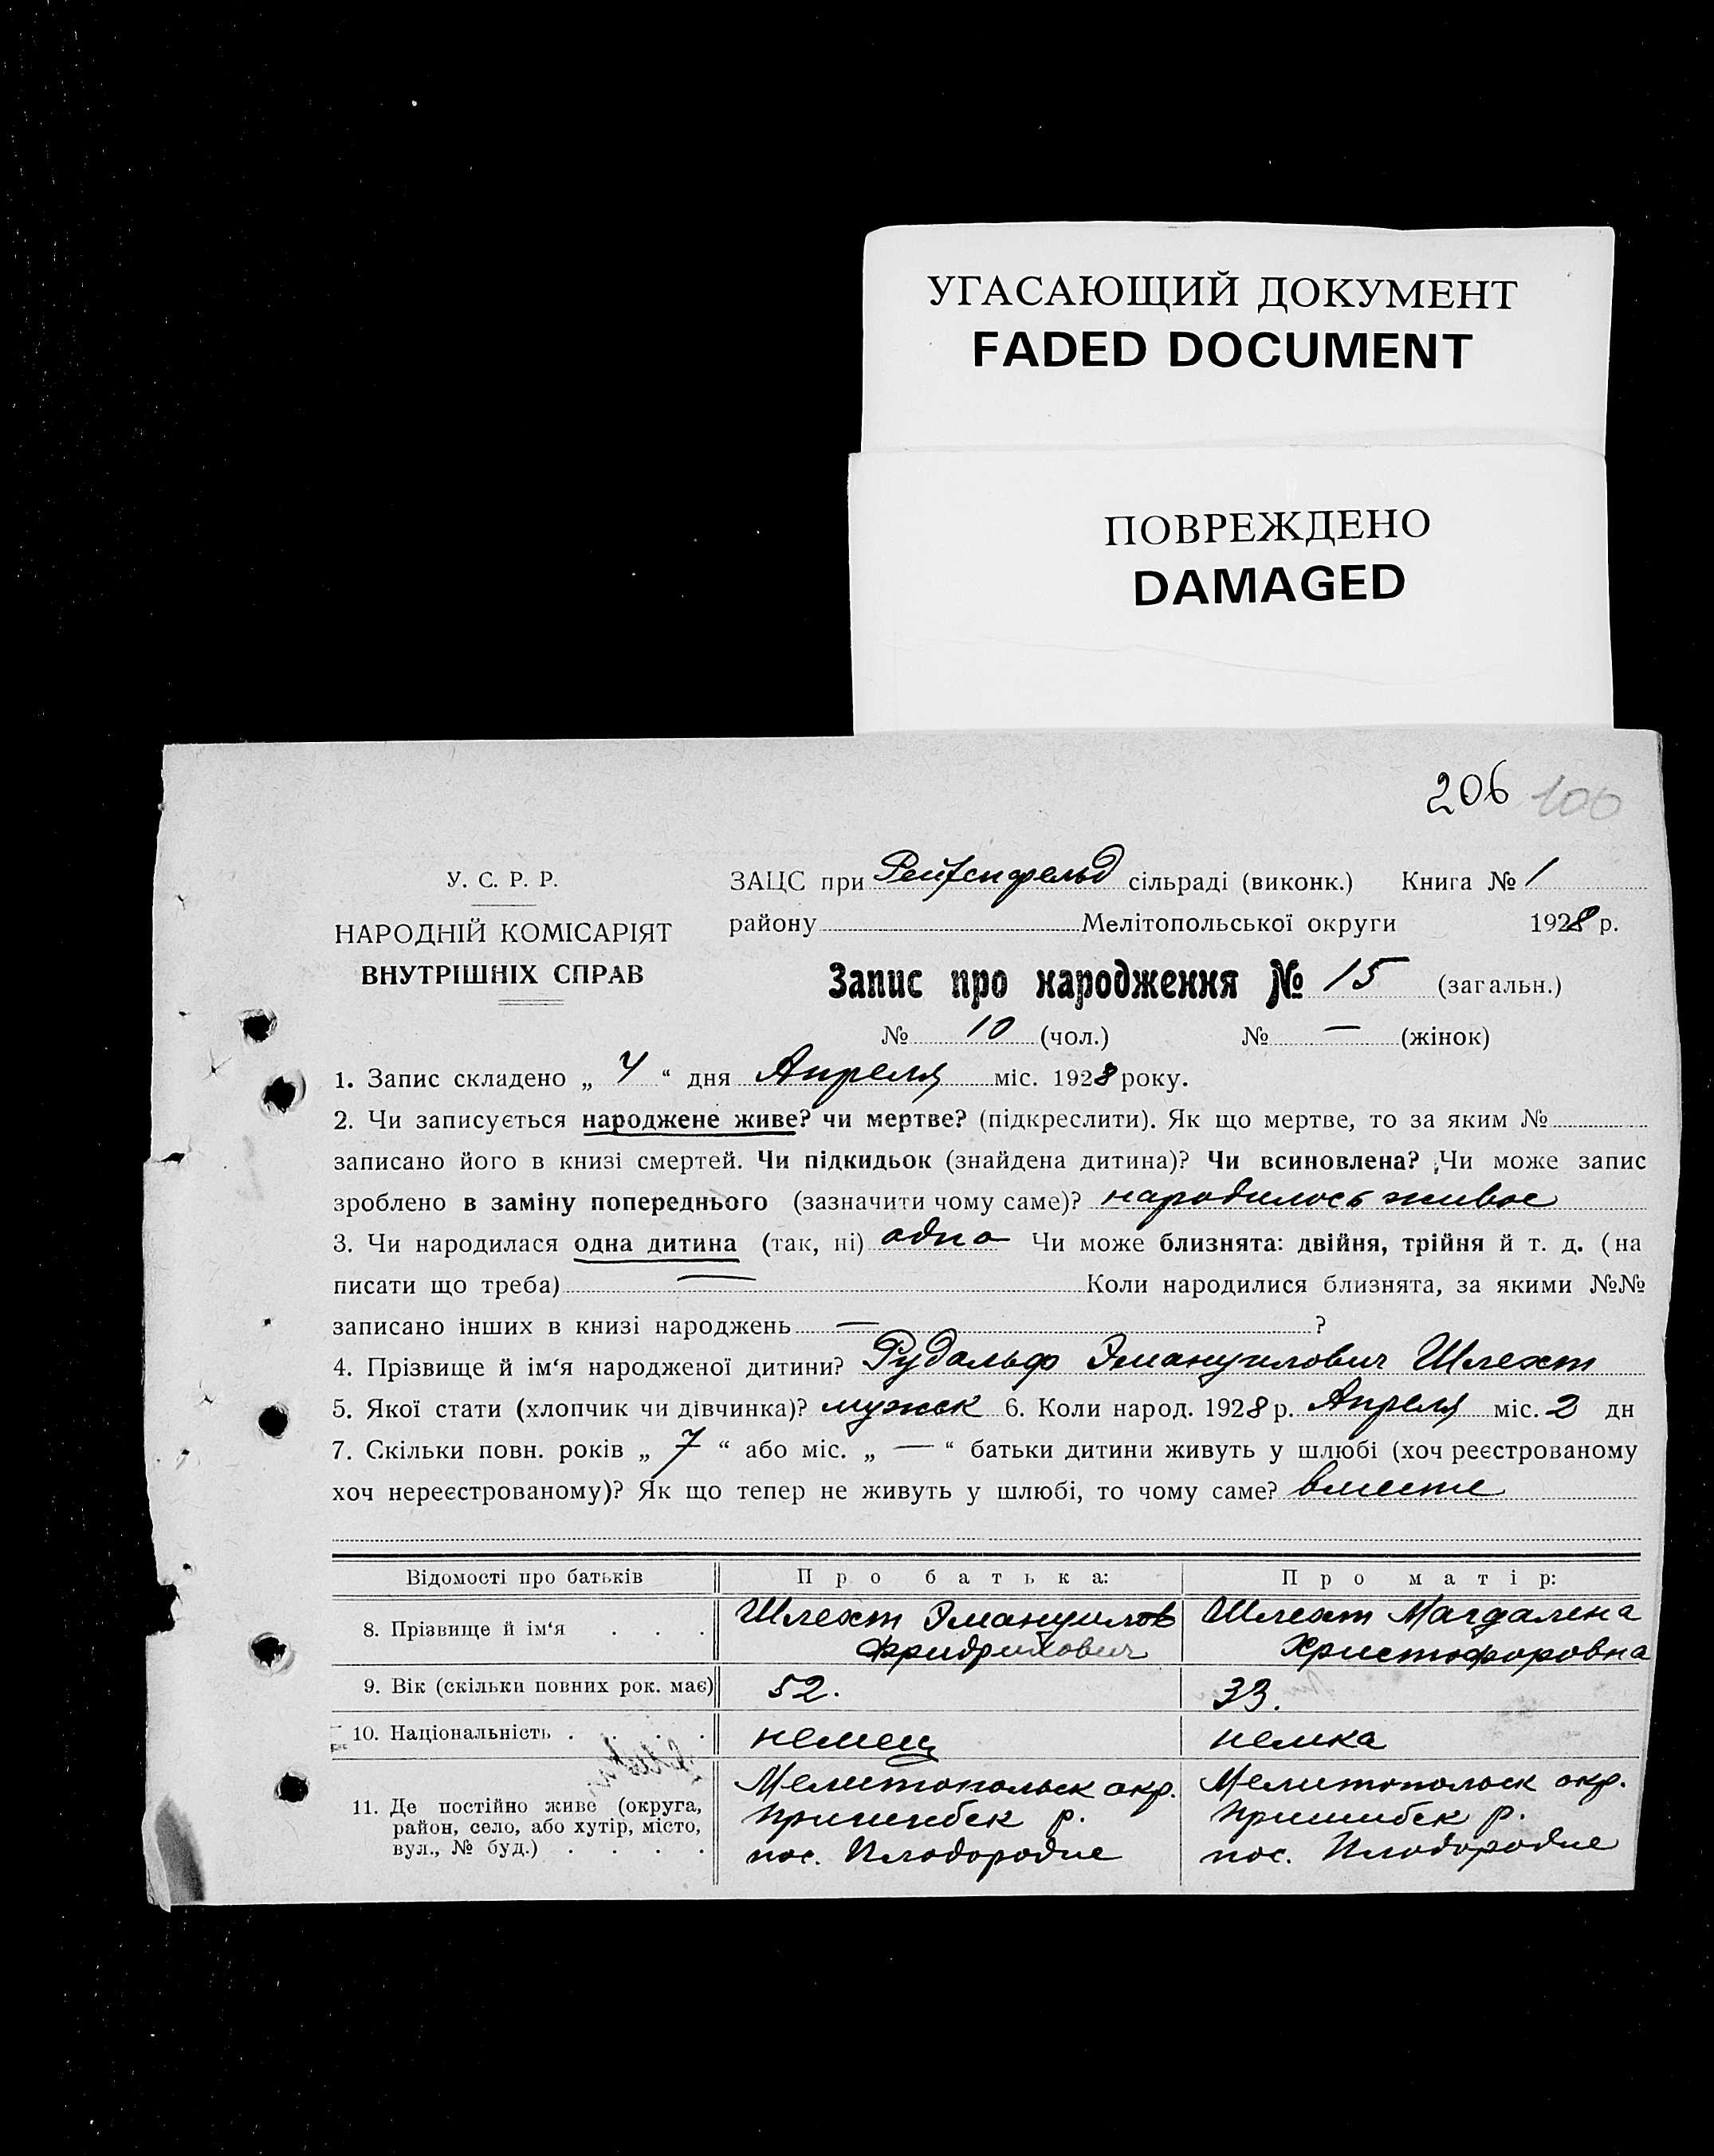 УГАСАЮЩИЙ ДОКУМЕНТ
FADED DOCUMENT
ПОВРЕЖДЕНО
DAMAGED
206 100
У. С. Р. Р.
НАРОДНІЙ КОМІСАРІЯТ
ВНУТРІШНІХ СПРАВ
ЗАЦС при Рейхенфельд сільраді (виконк.) Книга № 1
району Мелітопольської округи 1928 р.
Запис про народження № 15 (загальн.)
№ 10 (чол.) № — (жінок)
1. Запис складено „ 4 “ дня Апреля міс. 1928 року.
2. Чи записується народжене живе? чи мертве? (підкреслити). Як що мертве, то за яким №
записано його в книзі смертей. Чи підкидьок (знайдена дитина)? Чи всиновлена? Чи може запис
зроблено в заміну попереднього (зазначити чому саме)? народилось живое
3. Чи народилася одна дитина (так, ні) одно Чи може близнята: двійня, трійня й т. д. (на
писати що треба) — Коли народилися близнята, за якими №№
записано інших в книзі народжень — ?
4. Прізвище й ім‘я народженої дитини? Рудальф Эмануилович Шлехт
5. Якої стати (хлопчик чи дівчинка)? мужск 6. Коли народ. 1928 р. Апреля міс. 2 дн
7. Скільки повн. років „ 7 “ або міс. „ — “ батьки дитини живуть у шлюбі (хоч реєстрованому
хоч нереєстрованому)? Як що тепер не живуть у шлюбі, то чому саме? вместе
Відомості про батьків Про батька: Про матір:
8. Прізвище й ім‘я . . . Шлехт Эмануилов Шлехт Магдалена
Фридрихович Христофоровна
9. Вік (скільки повних рок. має) 52. 33.
10. Національність . . . . немец немка
11. Де постійно живе (округа, район, село, або хутір, місто, вул., № буд.) . . . .
Мелитопольск окр. Мелитопольск окр.
Пришибск р. Пришибск р.
пос. Плодородие пос. Плодородие